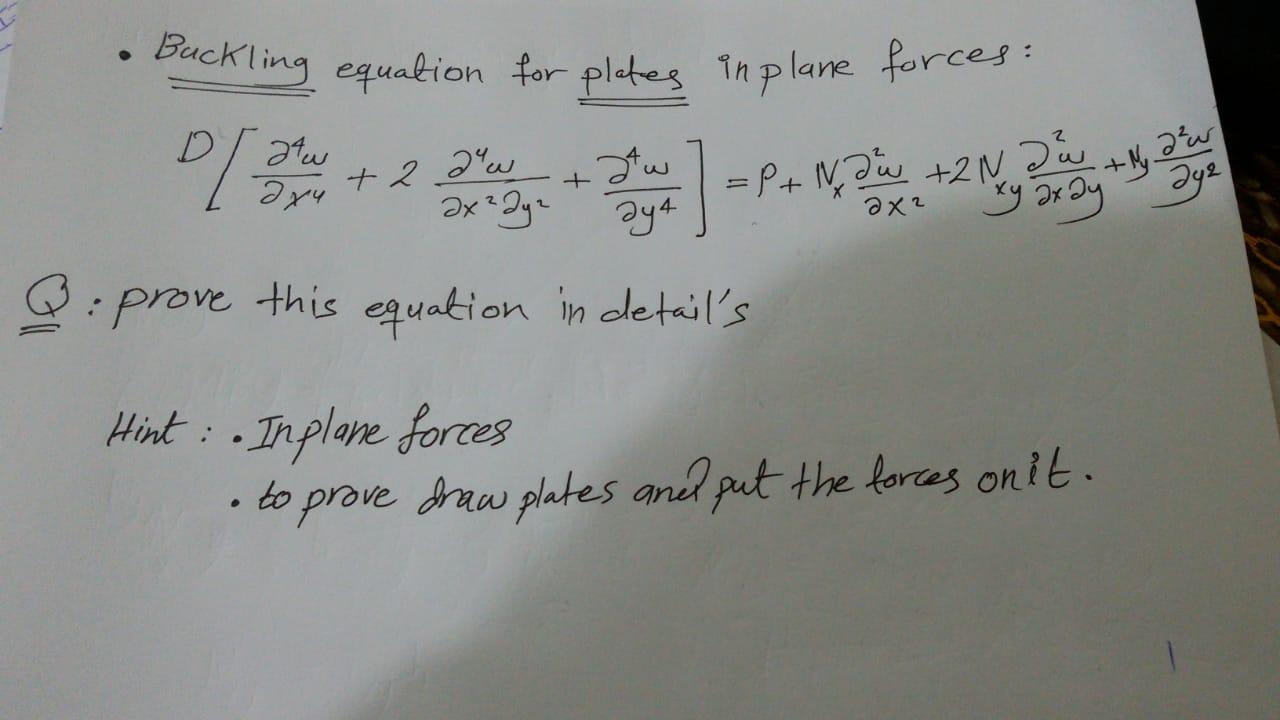 • Buckling equation for plates in plane forces:
D[∂⁴w/∂x⁴ + 2 ∂⁴w/∂x²∂y² + ∂⁴w/∂y⁴] = P + Nₓ ∂²w/∂x² + 2Nxy ∂²w/∂x∂y + Ny ∂²w/∂y²
Q: prove this equation in detail's
Hint: • Inplane forces
• to prove draw plates and put the forces on it.